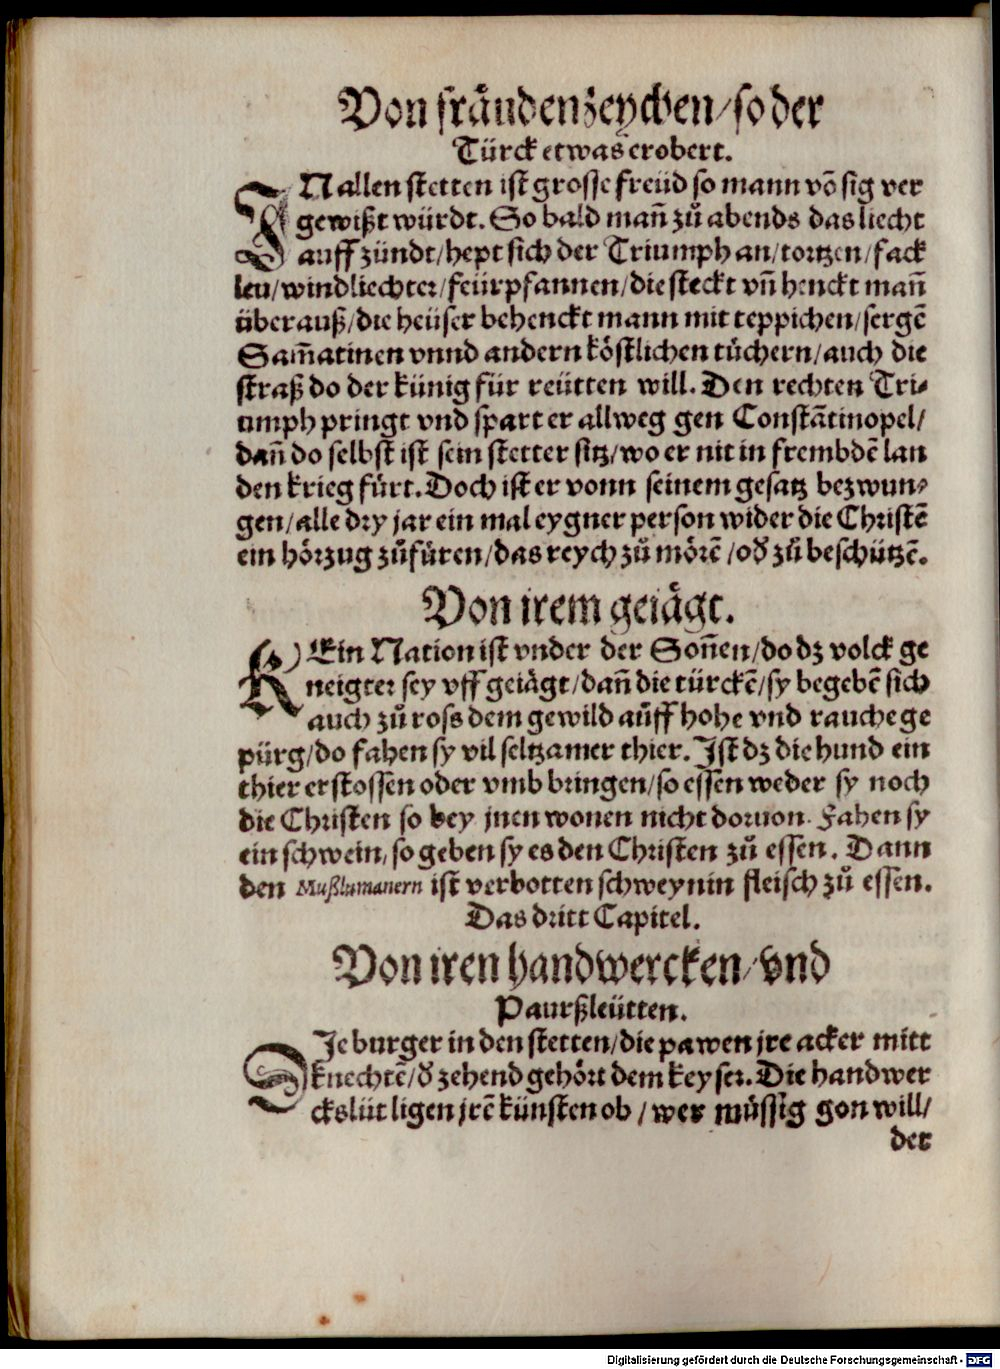 Von fråudenzeychen/so der
Türck etwas erobert.
IN allen stetten ist grosse freüd so mann võ sig ver
gewißt würdt. So bald mañ zů abends das liecht
auff zündt/hept sich der Triumph an/tortzen/fack
len/windliechter/feürpfannen/die steckt vñ henckt mañ
überauß/die heüser behenckt mann mit teppichen/sergẽ
Sam̃atinen vnnd andern köstlichen tüchern/auch die
straß do der künig für reütten will. Den rechten Tri⸗
umph pringt vnd spart er allweg gen Constãtinopel/
dañ do selbst ist sein stetter sitz/wo er nit in frembdẽ lan
den krieg fürt. Doch ist er vonn seinem gesatz bezwun⸗
gen/alle dry jar ein mal eygner person wider die Christẽ
ein hörzug zůfüren/das reych zů mörẽ/oď zů beschützẽ.
Von irem geiågt.
KEin Nation ist vnder der Soñen/do dz volck ge
neigter sey vff geiågt/dañ die türckẽ/sy begebẽ sich
auch zů ross dem gewild aůff hohe vnd rauche ge
pürg/do fahen sy vil seltzamer thier. Ist dz die hund ein
thier erstossen oder vmb bringen/so essen weder sy noch
die Christen so bey jnen wonen nicht doruon. Fahen sy
ein schwein, so geben sy es den Christen zů essen. Dann
den Mußlumanern ist verbotten schweynin fleisch zů essen.
Das dritt Capitel.
Von iren handwercken/vnd
Paurßleütten.
DIe burger in den stetten/die pawen jre acker mitt
knechtẽ/ď zehend gehört dem keyser. Die handwer
ckslüt ligen jrẽ künsten ob/wer müssig gon will/
der
Digitalisierung gefördert durch die Deutsche Forschungsgemeinschaft - DFG